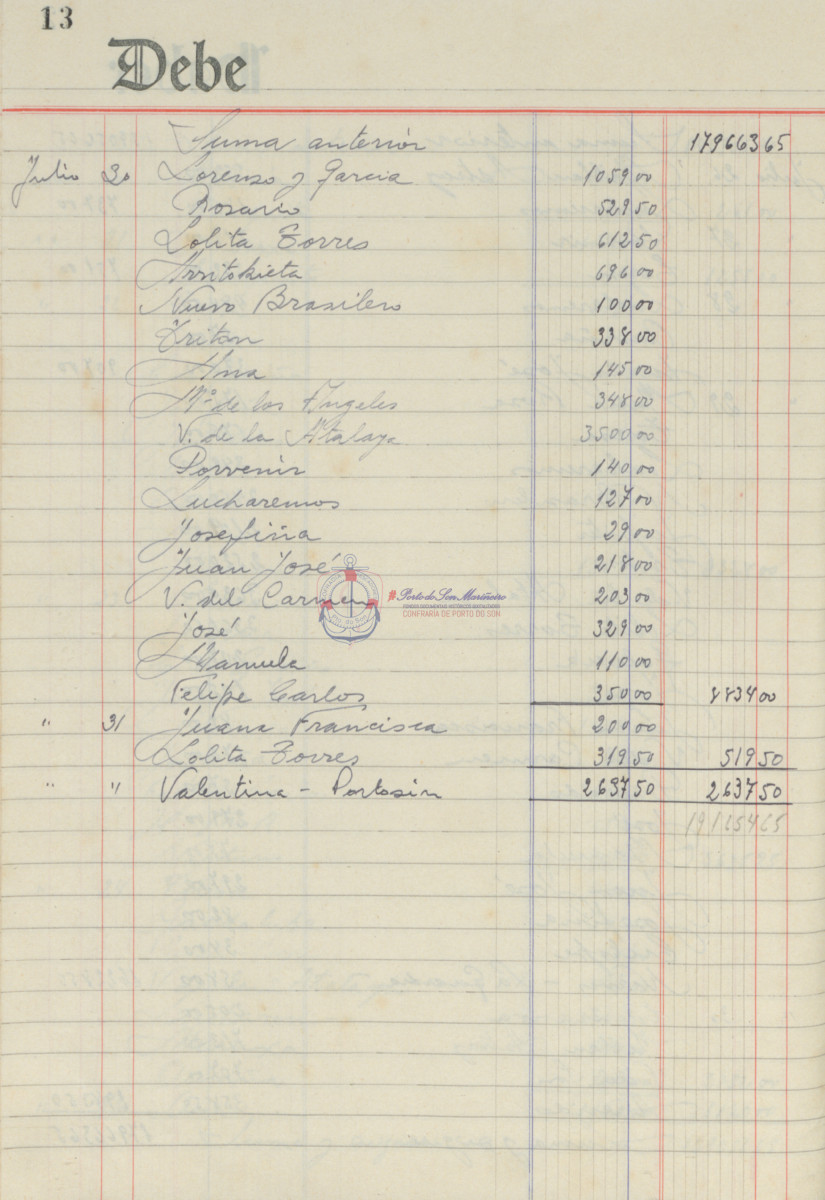 13
Debe
Suma anterior 17966365
Julio 30 Lorenzo y Garcia 105900
Rosario 52950
Lolita Torres 61250
Arritokieta 69600
Nuevo Brasilero 10000
Triton 33800
Ana 14500
Mª de los Angeles 34800
V. de la Atalaya 350000
Porvenir 14000
Lucharemos 12700
Josefina 2900
Juan José 21800
V. del Carmen 20300
José 32900
Manuela 11000
Felipe Carlos 35000 883400
" 31 Juana Francisca 20000
Lolita Torres 31950 51950
" " Valentina - Portosin 263750 263750
19165465
Porto do Son Mariñeiro
CONFRARIA DE PORTO DO SON